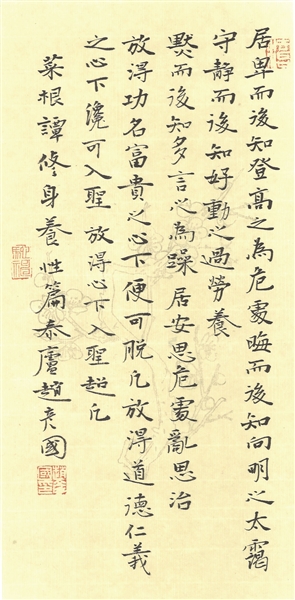 居卑而後知登高之為危處晦而後知向明之太露
守静而後知好動之過勞養
黙而後知多言之為躁居安思危處亂思治
放得功名富貴之心下便可脱凡放得道德仁義
之心下纔可入聖放得心下入聖超凡
菜根譚修身養性篇泰廬趙彦國